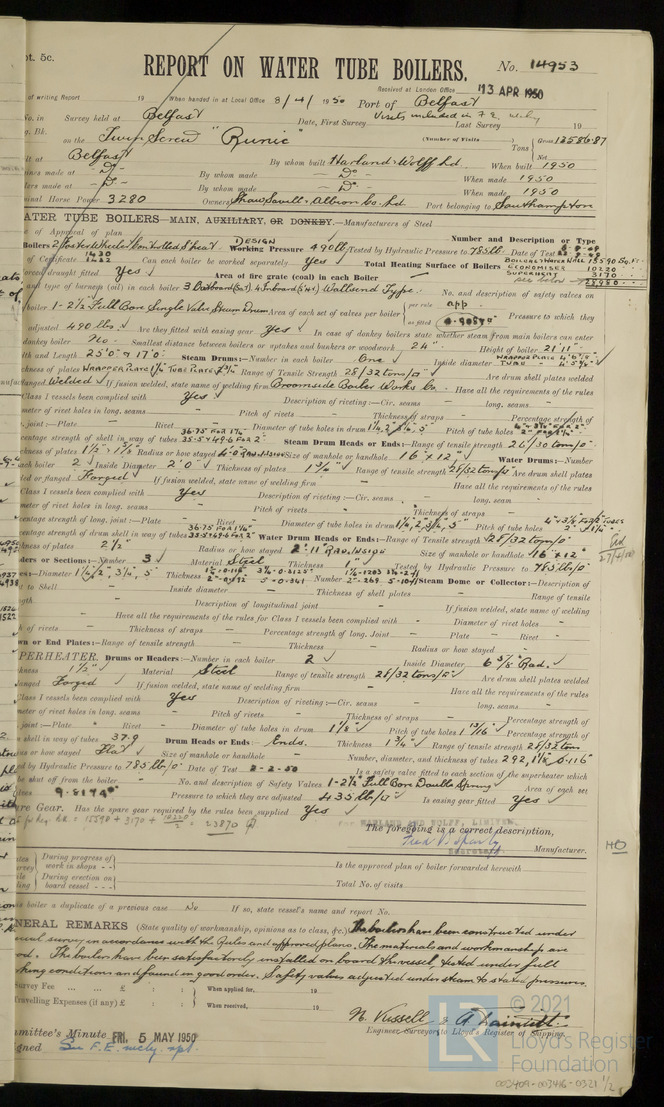 pt. 5c.
REPORT ON WATER TUBE BOILERS.
No. 14953
Received at London Office 13 APR 1950
of writing Report 19 When handed in at Local Office 8/4/1950 Port of Belfast
No. in Survey held at Belfast Date, First Survey Visits included in F.E. mchy Last Survey 19
g. Bk. on the Twin Screw "Runic" (Number of Visits) Tons Gross 13586.87 Net
ilt at Belfast By whom built Harland & Wolff Ld. When built 1950
ines made at -Do- By whom made -Do- When made 1950
lers made at -Do- By whom made -Do- When made 1950
minal Horse Power 3280 Owners Shaw Savill & Albion Co. Ld Port belonging to Southampton
ATER TUBE BOILERS—MAIN, AUXILIARY, OR DONKEY.—Manufacturers of Steel
e of Approval of plan Number and Description or Type
Boilers 2 Foster Wheeler Controlled S'heat DESIGN Working Pressure 490 lb Tested by Hydraulic Pressure to 785 lb Date of Test
of Certificate 1430 1623 Can each boiler be worked separately Yes Total Heating Surface of Boilers 15590
ECONOMISER 10220
SUPERHEAT 3170
see below 28980
orced draught fitted Yes Area of fire grate (coal) in each Boiler
and type of burners (oil) in each boiler 3 Outboard 4 Inboard Wallsend Type. No. and description of safety valves on
boiler 1-2½" Full Bore Single Valve Steam Drum Area of each set of valves per boiler per rule app. as fitted 9.8079" Pressure to which they
adjusted 490 lbs Are they fitted with easing gear Yes In case of donkey boilers state whether steam from main boilers can enter
donkey boiler No. Smallest distance between boilers or uptakes and bunkers or woodwork 24" Height of boiler 21'11"
th and Length 25'0" x 17'0" Steam Drums:—Number in each boiler One Inside diameter WRAPPER PLATE TUBE
ckness of plates WRAPPER PLATE 1½ TUBE PLATE Range of Tensile Strength 28/32 tons/□" Are drum shell plates welded
Welded If fusion welded, state name of welding firm Broomside Boiler Works Co. Have all the requirements of the rules
Class I vessels been complied with Yes Description of riveting:—Cir. seams long. seams
meter of rivet holes in long. seams Pitch of rivets Thickness of straps Percentage strength of
. joint:—Plate Rivet Diameter of tube holes in drum Pitch of tube holes
centage strength of shell in way of tubes 36.75 FOR 1¼" 35.5 & 49.6 FOR 2" Steam Drum Heads or Ends:—Range of tensile strength 26/30 tons/□"
ckness of plates Radius or how stayed Size of manhole or handhole 16" x 12" Water Drums:—Number
each boiler 2 Inside Diameter 2'0" Thickness of plates 1¾" Range of tensile strength 28/32 tons/□" Are drum shell plates
ded or flanged Forged If fusion welded, state name of welding firm Have all the requirements of the rules
Class I vessels been complied with Yes Description of riveting:—Cir. seams long. seam
meter of rivet holes in long. seams Pitch of rivets Thickness of straps
centage strength of long. joint:—Plate Rivet Diameter of tube holes in drum Pitch of tube holes
centage strength of shell in way of tubes 36.75 FOR 1¼" 35.5 & 49.6 FOR 2" Water Drum Heads or Ends:—Range of tensile strength 28/32 tons/□"
ckness of plates 2½" Radius or how stayed 2'.11" RAD. INSIDE Size of manhole or handhole 16" x 12"
ders or Sections:—Number 3 Material Steel Thickness 1" Tested by Hydraulic Pressure to 785 lb/□"
s:—Diameter 1¼, 2, 3¼, 5" Thickness Number Steam Dome or Collector:—Description of
g to Shell Inside diameter Thickness of shell plates Range of tensile
ngth Description of longitudinal joint If fusion welded, state name of welding
Have all the requirements of the rules for Class I vessels been complied with Diameter of rivet holes
h of rivets Thickness of straps Percentage strength of long. Joint Plate Rivet
wn or End Plates:—Range of tensile strength Thickness Radius or how stayed
PERHEATER. Drums or Headers:—Number in each boiler 2 Inside Diameter 6 3/8" Rad.
kness 1½" Material Steel Range of tensile strength 28/32 tons/□" Are drum shell plates welded
langed Forged If fusion welded, state name of welding firm Have all the requirements of the rules
Class I vessels been complied with Yes Description of riveting:—Cir. seams long. seams
meter of rivet holes in long. seams Pitch of rivets Thickness of straps Percentage strength of
joint:—Plate Rivet Diameter of tube holes in drum 1⅛" Pitch of tube holes 1 13/16" Percentage strength of
shell in way of tubes 37.9 Drum Heads or Ends:—Ends. Thickness 1¾" Range of tensile strength 28/32 tons
us or how stayed Flat Size of manhole or handhole Number, diameter, and thickness of tubes 292, 1⅛", 0.116"
ed by Hydraulic Pressure to 785 lb/□" Date of Test 2-2-50 Is a safety valve fitted to each section of the superheater which
be shut off from the boiler No. and description of Safety Valves 1-2½" Full Bore Double Spring Area of each set
9.8174" Pressure to which they are adjusted 435 lb/□" Is easing gear fitted Yes
re Gear. Has the spare gear required by the rules been supplied Yes
= 15590 + 3170 + 10220/2 = 23870
FOR HARLAND AND WOLFF, LIMITED.
The foregoing is a correct description,
Secretary Manufacturer.
During progress of work in shops - - Is the approved plan of boiler forwarded herewith
During erection on board vessel - - - Total No. of visits
boiler a duplicate of a previous case No If so, state vessel's name and report No.
NERAL REMARKS (State quality of workmanship, opinions as to class, &c.) The boilers have been constructed under
cial survey in accordance with the Rules and approved plans. The materials and workmanship are
od. The boilers have been satisfactorily installed on board the vessel, tested under full
king conditions and found in good order. Safety valves adjusted under steam to stated pressures.
Survey Fee ... ... £ : : When applied for, 19
Travelling Expenses (if any) £ : : When received, 19
N. Russell &
Engineer Surveyor to Lloyd's Register of Shipping.
mmittee's Minute FRI. 5 MAY 1950
gned See F.E. mchy. rpt.
LR © 2021
Lloyd's Register
Foundation
002409-003416-0321 1/2